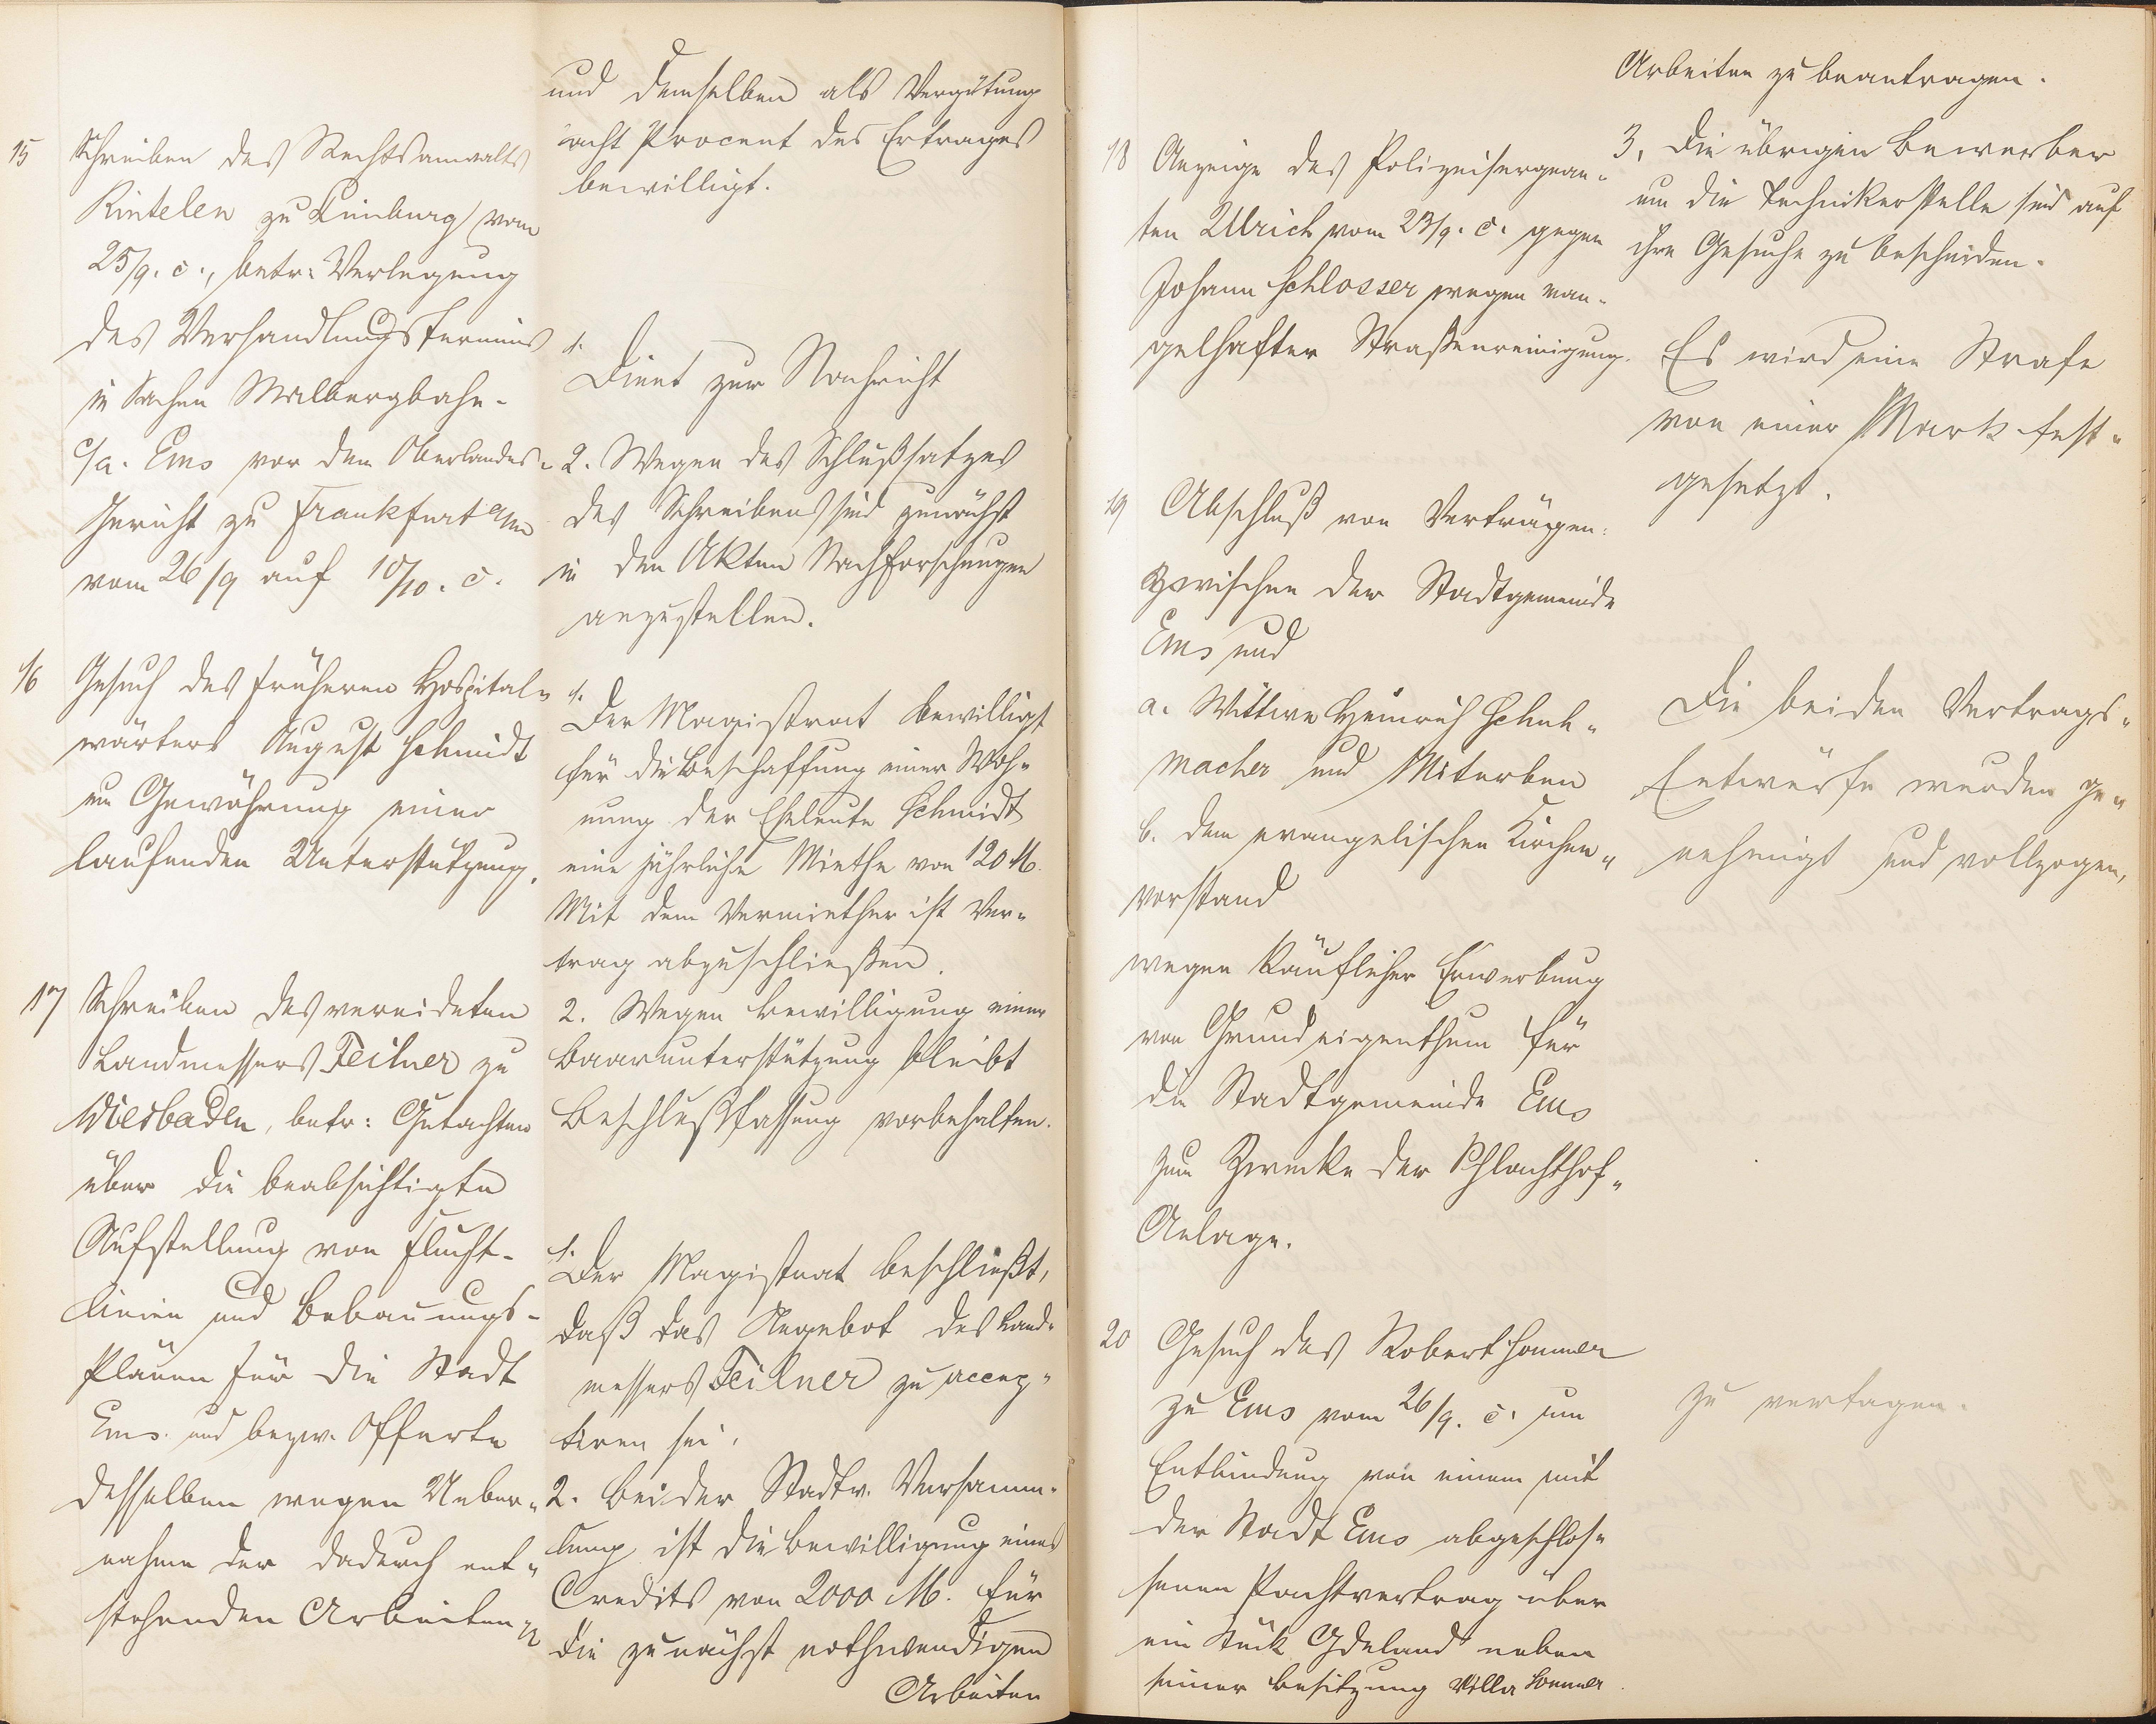 und demselben als Vergütung
acht Procent des Ertrages
bewilligt.
15 Schreiben des Rechtsanwalts
Rintelen zu Limburg vom
25/9. c., betr: Verlegung
des Verhandlungstermins
in Sachen Malbergbahn-
c/a. Ems vor dem Oberlandes-
Gericht zu Frankfurt a/m
vom 26/9 auf 10/10. c.
1.
Dient zur Nachricht
2. Wegen des Schlußsatzes
des Schreibens sind zunächst
in den Akten Nachforschungen
anzustellen.
16 Gesuch des früheren Hospital-
wärters August Schmidt
um Gewährung einer
laufenden Unterstützung.
1.
Der Magistrat bewilligt
für die Beschaffung einer Woh-
nung der Eheleute Schmidt
eine jährliche Miethe von 120 M.
Mit dem Vermiether ist Ver-
trag abzuschließen.
2. Wegen Bewilligung einer
Baarunterstützung bleibt
Beschlußfassung vorbehalten.
17 Schreiben des vereideten
Landmessers Feilner zu
Wiesbaden, betr: Gutachten
über die beabsichtigte
Aufstellung von Flucht-
linien und Bebauungs-
Plänen für die Stadt
Ems und bezw. Offerte
desselben wegen Ueber-
nahme der dadurch ent-
stehenden Arbeiten
1.
Der Magistrat beschließt,
daß das Angebot des Land-
messers Feilner zu accep-
tiren sei.
2. Bei der Stadtv. Versamm-
lung ist die Bewilligung eines
Credits von 2000 M. für
die zunächst nothwendigen
Arbeiten
Arbeiten zu beantragen.
3. Die übrigen Bewerber
um die Technikerstelle sind auf
ihre Gesuche zu bescheiden.
18 Anzeige des Polizeisergean-
ten Ulrich vom 23/9. c. gegen
Johann Schlosser wegen man-
gelhafter Straßenreinigung.
Es wird eine Strafe
von einer Mark fest-
gesetzt.
19 Abschluß von Verträgen
zwischen der Stadtgemeinde
Ems und
a. Wittwe Heinrich Schuh-
macher und Miterben
b. dem evangelischen Kirchen-
vorstand
wegen käuflicher Erwerbung
von Grundeigenthum für
die Stadtgemeinde Ems
zum Zwecke der Schlachthof-
Anlage.
Die beiden Vertrags-
Entwürfe wurden ge-
nehmigt und vollzogen.
20 Gesuch des Robert Sommer
zu Ems vom 26/9. c. um
Entbindung von einem mit
der Stadt Ems abgeschlos-
senen Pachtvertrag über
ein Stück Oedeland neben
seiner Besitzung Villa Sommer
zu vertagen.